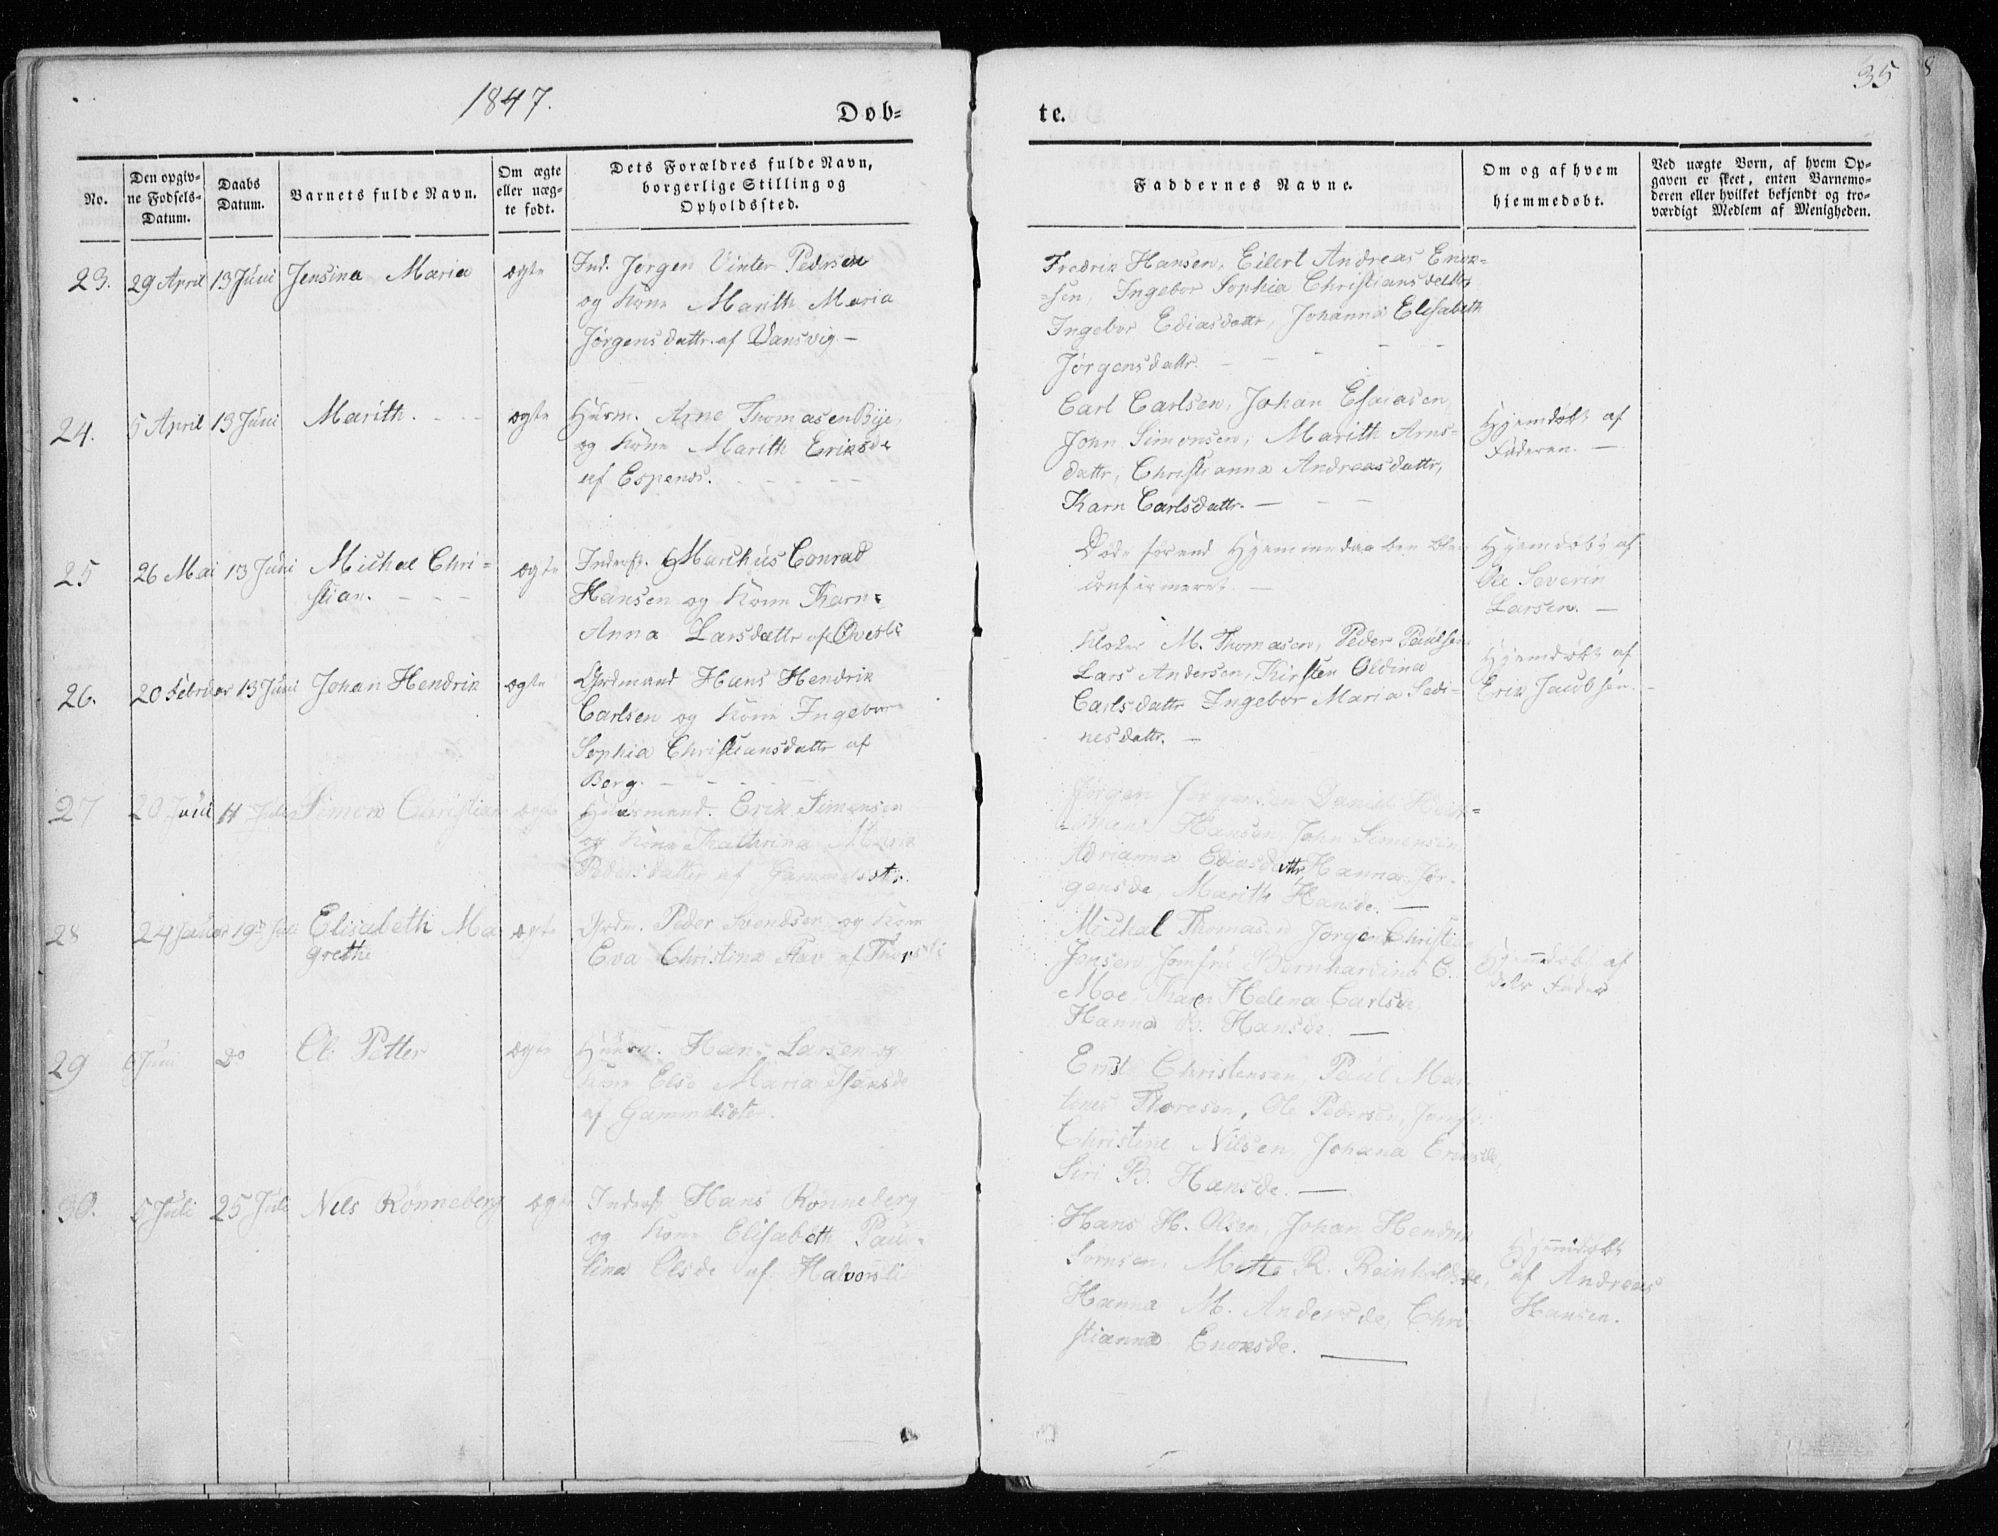 1847.
Døb=
te.
35
8
No.
Den opgiv-
ne Fødsels-
Datum.
Daabs
Datum.
Barnets fulde Navn.
Om ægte
eller uæg-
te født.
Dets Forældres fulde Navn,
borgerlige Stilling og
Opholdssted.
Faddernes Navne.
Om og af hvem
hjemmedøbt.
Ved uægte Børn, af hvem Op-
gaven er skeet, enten Barnemo-
deren eller hvilket bekjendt og tro-
værdigt Medlem af Menigheden.
23. 29 April 13 Juni Jensina Maria ægte
Ind. Jørgen Vinter Pedersen
og Kone Marith Maria
Jørgensdattr. af Vansvig -
Fredrik Hansen, Eilert Andreas Enok=
=sen, Ingebor Sophia Christiansdattr
Ingebor Ediasdattr, Johanna Elisabeth
Jørgensdattr. - - - -
24. 5 April 13 Juni Marith. - - ægte
Husm. Arne Thomasen Bye,
og Kone Marith Eriksde
af Espenes. - - - -
Carl Carlsen, Johan Esaiasen
John Simonsen, Marith Arns=
dattr, Christianna Andreasdattr,
Karn Carlsdattr. - - -
Hjemdøbt af
Faderen. -
25 26 Mai 13 Juni Michal Chri=
stian. - - - ægte
Inderst. Marchus Conrad
Hansen og Kone Karn=
Anna Larsdattr af
Døde førend Hjemmedaaben blev
confirmeret. -
Hjemdøbt af
Ole Severin
Larsen. -
26. 20 Februar 13 Juni Johan Hendrik ægte
Grdmand Hans Hendrik
Carlsen og Kone Ingebor=
Sophia Christiansdattr af
Berg. - - - -
M. Thomasen, Peder Paulsen
Lars Andersen, Kirsten Oldina
Carlsdattr Ingebor Maria Sedi-
nesdattr. -
Hjemdøbt af
Erik Jacobsen. -
27 20 Juni 11 Juli Simen Christian ægte
Huusmand. Erik Simensen
og Kone Kathrina Maria
Pedersdatter af Gammelsætr.
Jørgen Jørgensen Daniel
Hansen John Simensen
Adrianna Ediasdattr, Hanna Jør-
gensde, Marith Hansde. -
28 24 Januar 19de Juli Elisabeth Ma
grethe ægte
Grdm. Peder Svendsen og Kone
Eva Christina Flav af
Michal Thomasen Jørgen Christian
Jensen, Jomfru Bernhardina C.
Moe, Karn Helena Carlsde
Hanna B. Hansde. -
Hjemmedøbt af
dets Fader
29 6 Juni Do Ole Petter ægte
Huusm. Hans Larsen og
Kone Else Maria Hansde
af Gammelsæter.
Christensen, Paul Mar
tines Thoresen, Ole Pedersen, Jomfr.
Christine Nilsen, Johana
Siri B. Hansde. -
30. 5 Juli 25 Juli Nils Rønneberg ægte
Inderst Hans Rønneberg
og Kone Elisabeth Pau=
lina Olsde af Halvorsli
Hans H. Olsen, Johan Hendrik
Sørnsen, Mette R. Reinholdsde,
Hanna M. Andersde, Chri
stianna Enoksde. -
Hjemmdøbt
af Andreas
Hansen.